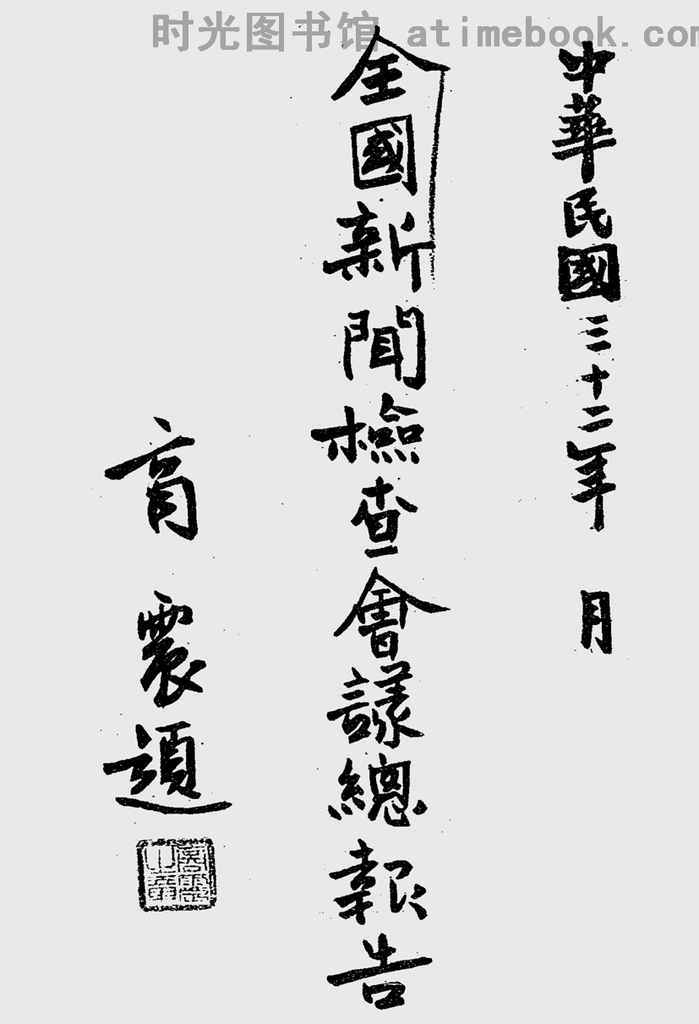 时光图书馆 atimebook.com
中華民國三十二年 月
全國新聞檢查會議總報告
商震題